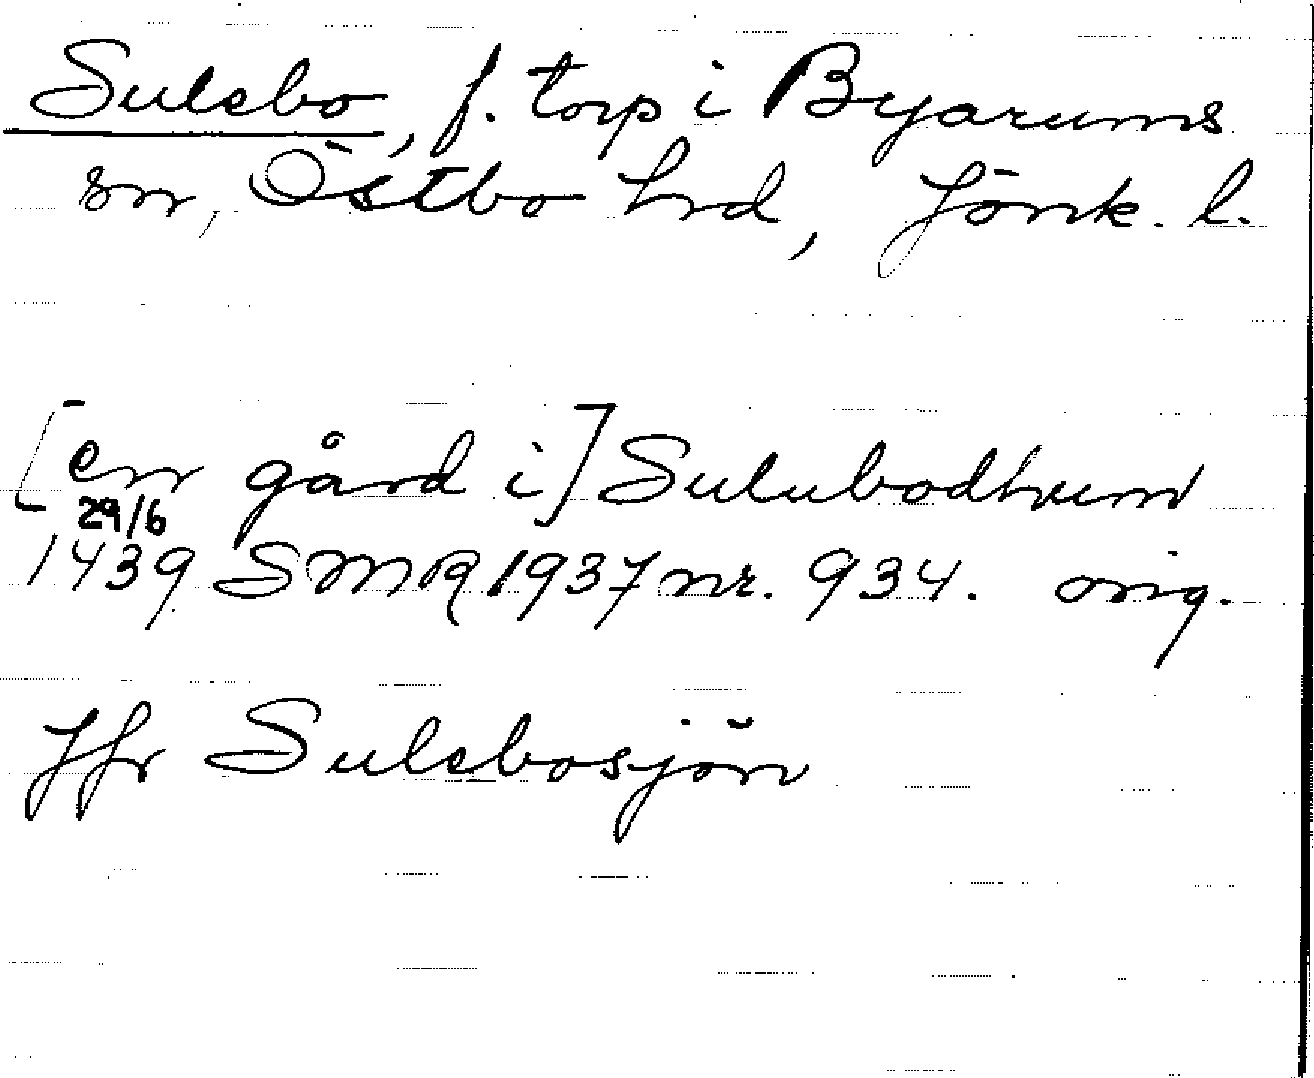 Sulebo, f. torp i Byarums
sn, Östbo hrd, Jönk. l.
[en gård i] Sulubodhum
29/6
1439 SMR 1937 nr. 934. orig.
Jfr Sulebosjön